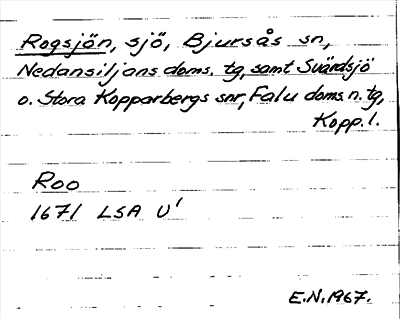 Rogsjön, sjö, Bjursås sn,
Nedansiljans doms. tg, samt Svärdsjö
o. Stora Kopparbergs snr, Falu doms. n. tg,
Kopp. l.
Roo
1671 LSA U'
E.N. 1967.